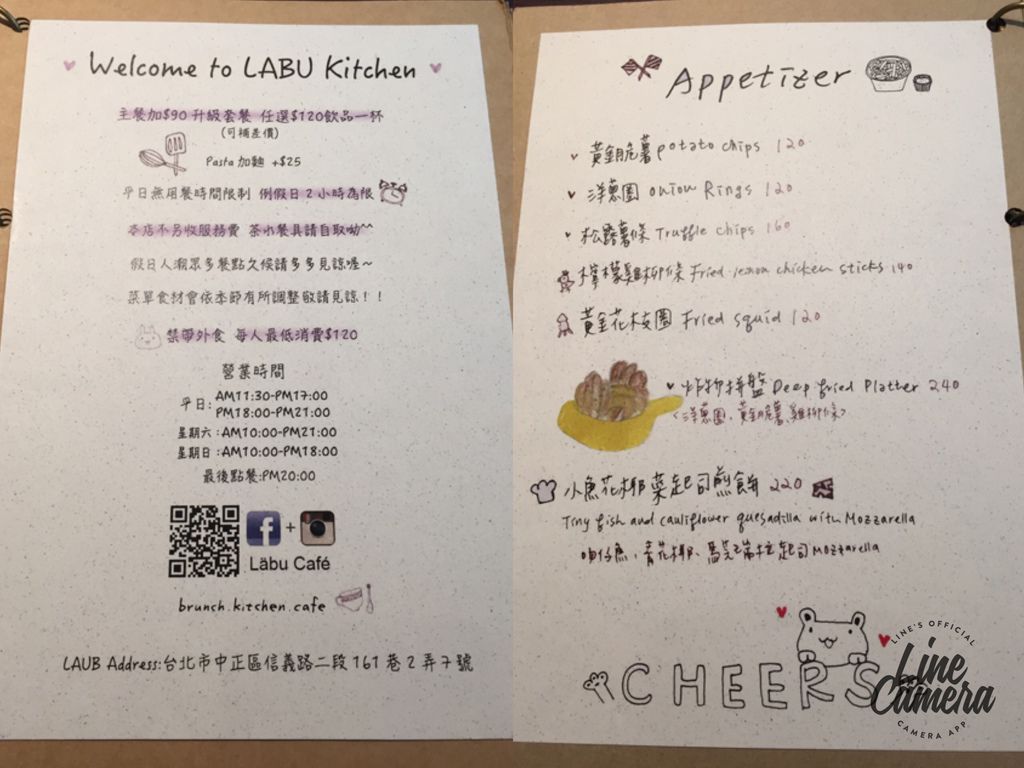 Welcome to LABU Kitchen
主餐加$90升級套餐 任選$120飲品一杯
(可補差價)
Pasta 加麵 +$25
平日無用餐時間限制 例假日2小時為限
本店不另收服務費 茶水餐具請自取呦^^
假日人潮眾多餐點久候請多多見諒喔~
菜單食材會依季節有所調整敬請見諒!!
禁帶外食 每人最低消費$120
營業時間
平日: AM11:30-PM17:00
PM18:00-PM21:00
星期六:AM10:00-PM21:00
星期日:AM10:00-PM18:00
最後點餐:PM20:00
f + 
Läbu Café
brunch.kitchen.cafe
LAUB Address:台北市中正區信義路二段161巷2弄7號
Appetizer
黃金脆薯 potato chips 120
洋蔥圈 Onion Rings 120
松露薯條 Truffle chips 160
檸檬雞柳條 Fried lemon chicken sticks 140
黃金花枝圈 Fried squid 120
炸物拼盤 Deep fried Platter 240
<洋蔥圈、黃金脆薯、雞柳條>
小魚花椰菜起司煎餅 220
Tiny fish and cauliflower quesadilla with Mozzarella
吻仔魚、青花椰、馬芝瑞拉起司Mozzarella
CHEERS
LINE'S OFFICIAL
Line Camera
CAMERA APP